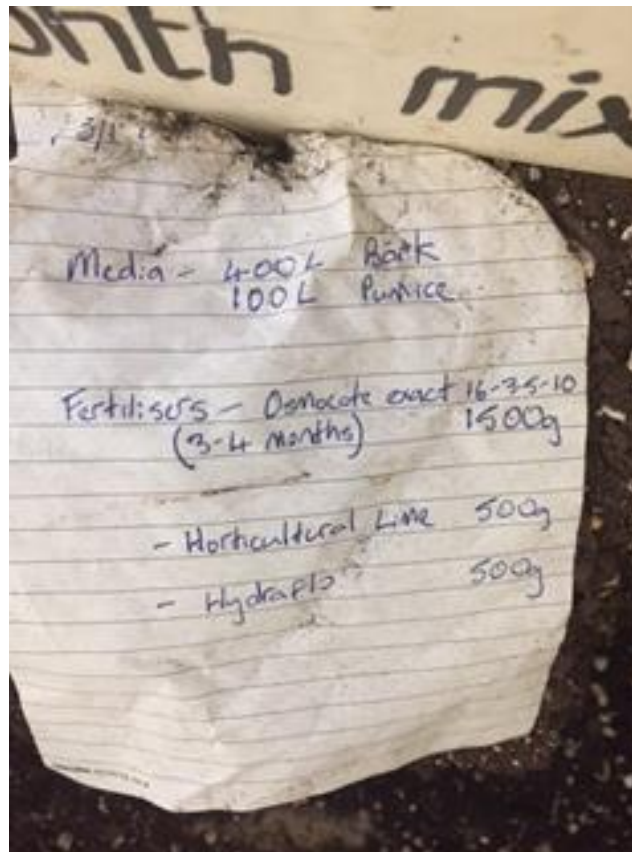 onth mix
3/1
Media - 400L Bark
100L Pumice
Fertilisers - Osmocote exact 16-3.5-10
(3-4 months) 1500g
- Horticultural Lime 500g
- Hydraflo 500g